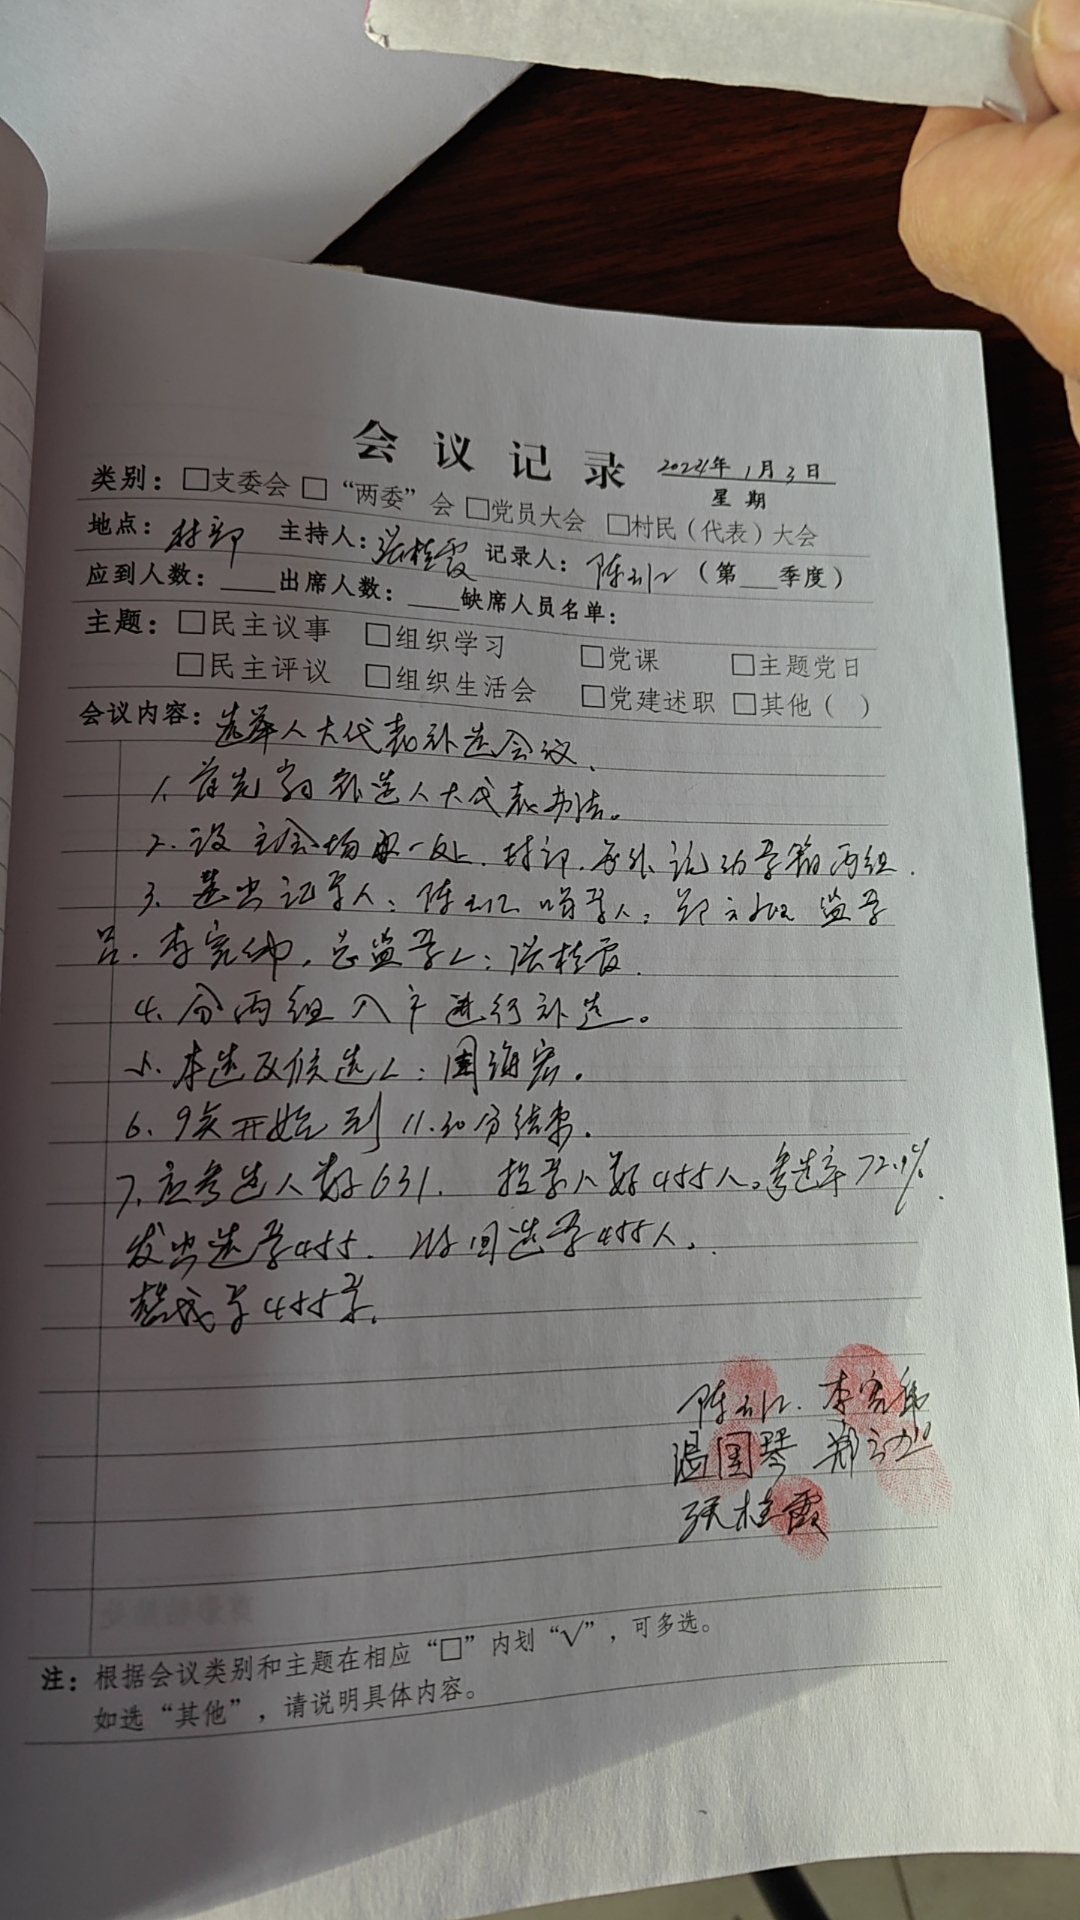 会议记录 2024年1月3日
星期
类别：□支委会 □“两委”会 □党员大会 □村民（代表）大会
地点：村部 主持人：张桂霞 记录人：陈 （第__季度）
应到人数：____出席人数：____缺席人员名单：
主题：□民主议事 □组织学习 □党课 □主题党日
□民主评议 □组织生活会 □党建述职 □其他（ ）
会议内容：选举人大代表补选会议.
1. 首先 补选人大代表办法。
2. 设主会场 一处. 村部. 另外 流动票箱两组.
3. 选出记票人：陈 唱票人：郑 监票
员. 李 . 总监票人：张桂霞.
4. 分两组入户进行补选。
5. 本选区候选人：周海宏.
6. 9点开始到11.30分结束.
7. 应参选人数631. 投票人数455人。参选率72.1%.
发出选票455. 收回选票455人.
赞成票455票.
陈 李
温国琴 郑
张桂霞
注：根据会议类别和主题在相应“□”内划“√”，可多选。
如选“其他”，请说明具体内容。